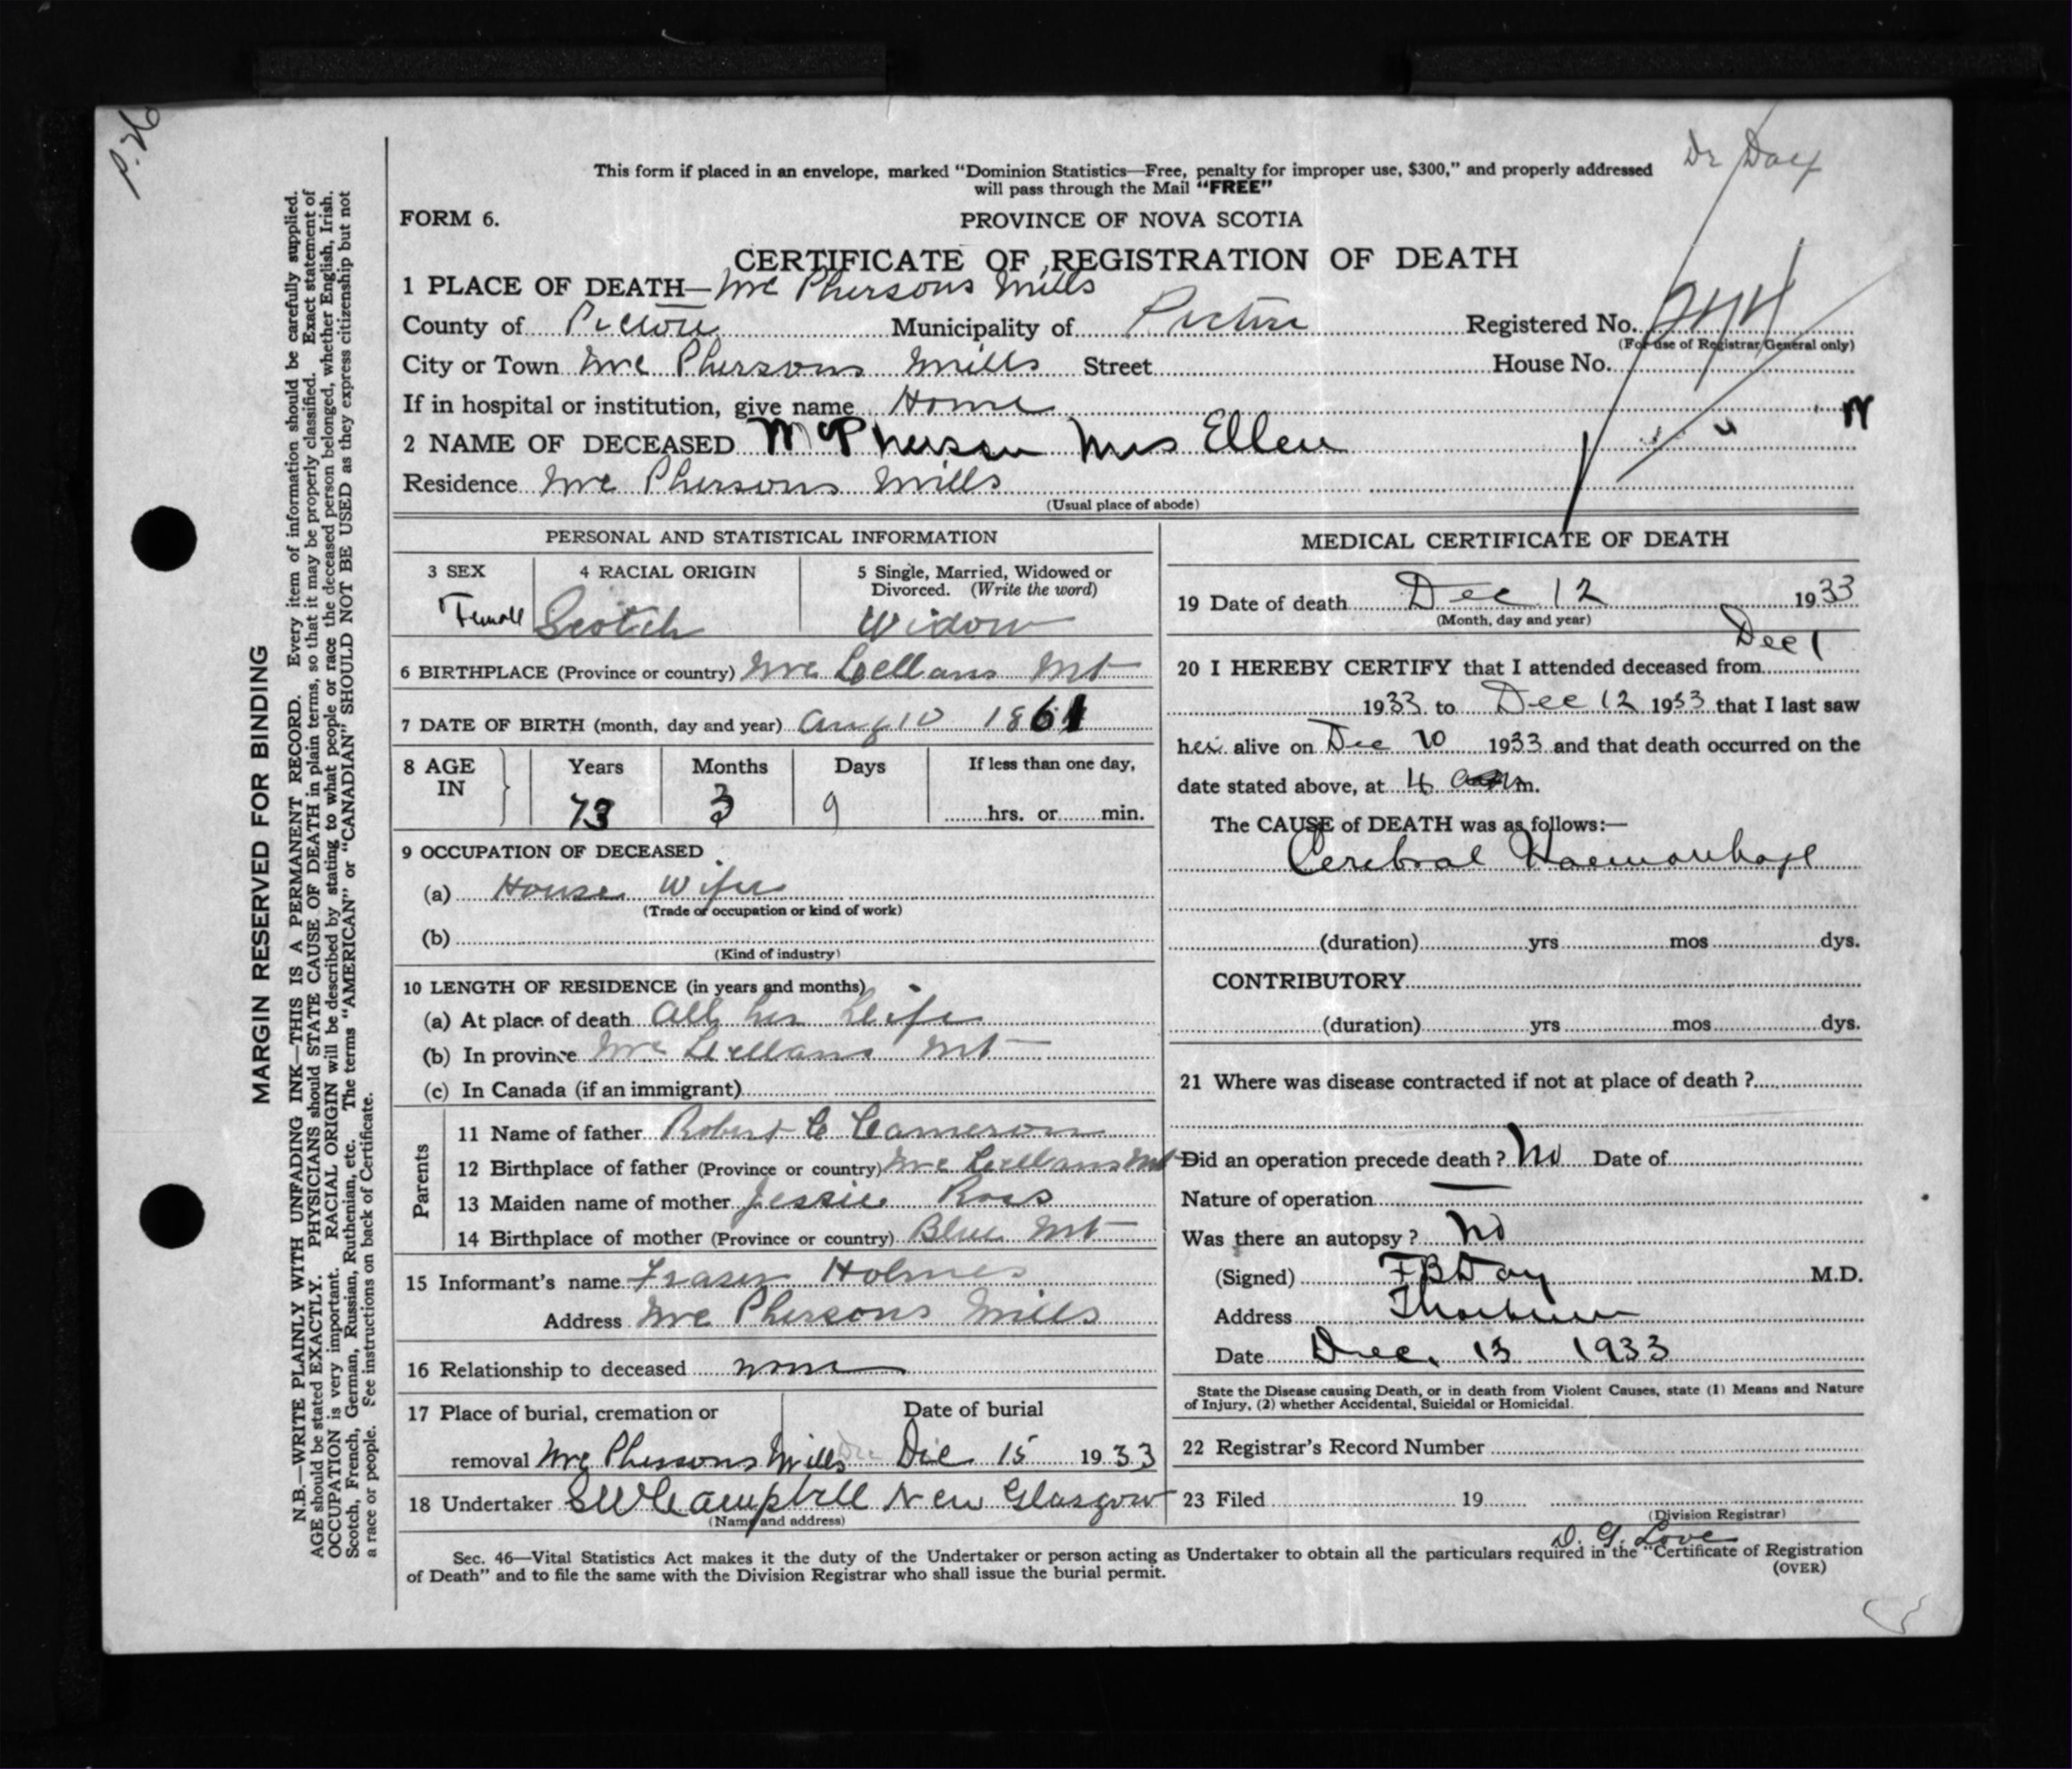 P. 26
Dr Day
This form if placed in an envelope, marked “Dominion Statistics—Free, penalty for improper use, $300,” and properly addressed
will pass through the Mail “FREE”
FORM 6.
PROVINCE OF NOVA SCOTIA
CERTIFICATE OF REGISTRATION OF DEATH
1 PLACE OF DEATH—Mc Phersons Mills
County of Pictou Municipality of Pictou Registered No.
(For use of Registrar General only)
City or Town Mc Phersons Mills Street House No.
If in hospital or institution, give name Home
2 NAME OF DECEASED McPherson Mrs Ellen
Residence Mc Phersons Mills
(Usual place of abode)
PERSONAL AND STATISTICAL INFORMATION
3 SEX 4 RACIAL ORIGIN 5 Single, Married, Widowed or
Divorced. (Write the word)
Female Scotch Widow
6 BIRTHPLACE (Province or country) Mc Lellans Mt
7 DATE OF BIRTH (month, day and year) Aug 10 1861
8 AGE IN Years Months Days If less than one day,
73 3 9 hrs. or min.
9 OCCUPATION OF DECEASED
(a) House Wife
(Trade or occupation or kind of work)
(b)
(Kind of industry)
10 LENGTH OF RESIDENCE (in years and months)
(a) At place of death All her Life
(b) In province Mc Lellans Mt
(c) In Canada (if an immigrant)
Parents
11 Name of father Robert C Cameron
12 Birthplace of father (Province or country) Mc Lellans Mt
13 Maiden name of mother Jessie Ross
14 Birthplace of mother (Province or country) Blue Mt
15 Informant's name Fraser Holmes
Address Mc Phersons Mills
16 Relationship to deceased none
17 Place of burial, cremation or Date of burial
removal Mc Phersons Mills Dec 15 1933
18 Undertaker SW Campbell New Glasgow
(Name and address)
MEDICAL CERTIFICATE OF DEATH
19 Date of death Dec 12 1933
(Month, day and year)
Dec 1
20 I HEREBY CERTIFY that I attended deceased from
1933 to Dec 12 1933 that I last saw
her alive on Dec 10 1933 and that death occurred on the
date stated above, at 4 a m.
The CAUSE of DEATH was as follows:—
Cerebral Haemorrhage
(duration) yrs mos dys.
CONTRIBUTORY
(duration) yrs mos dys.
21 Where was disease contracted if not at place of death ?
Did an operation precede death ? No Date of
Nature of operation
Was there an autopsy ? No
(Signed) F B Day M.D.
Address Thorburn
Date Dec. 13 1933
State the Disease causing Death, or in death from Violent Causes, state (1) Means and Nature
of Injury, (2) whether Accidental, Suicidal or Homicidal.
22 Registrar's Record Number
23 Filed 19
(Division Registrar)
D. G. Love
Sec. 46—Vital Statistics Act makes it the duty of the Undertaker or person acting as Undertaker to obtain all the particulars required in the “Certificate of Registration
of Death” and to file the same with the Division Registrar who shall issue the burial permit.
(OVER)
MARGIN RESERVED FOR BINDING
N.B.—WRITE PLAINLY WITH UNFADING INK—THIS IS A PERMANENT RECORD. Every item of information should be carefully supplied.
AGE should be stated EXACTLY. PHYSICIANS should STATE CAUSE OF DEATH in plain terms, so that it may be properly classified. Exact statement of
OCCUPATION is very important. RACIAL ORIGIN will be described by stating to what people or race the deceased person belonged, whether English, Irish.
Scotch, French, German, Russian, Ruthenian, etc. The terms “AMERICAN” or “CANADIAN” SHOULD NOT BE USED as they express citizenship but not
a race or people. See instructions on back of Certificate.